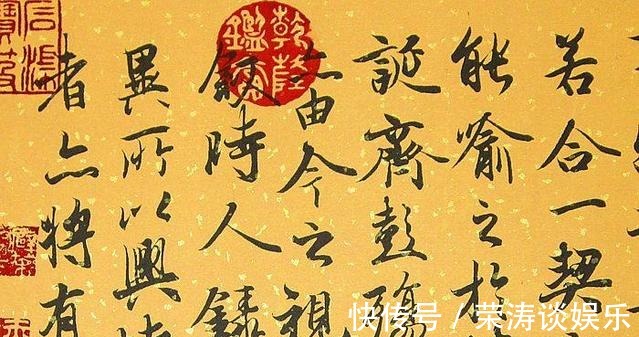 若合一契
能喻之於
誕齊彭殤
亦由今之視
敘時人錄
異所以興
者亦將有
乾隆鑑賞
石渠寶笈
快传号 / 荣涛谈娱乐